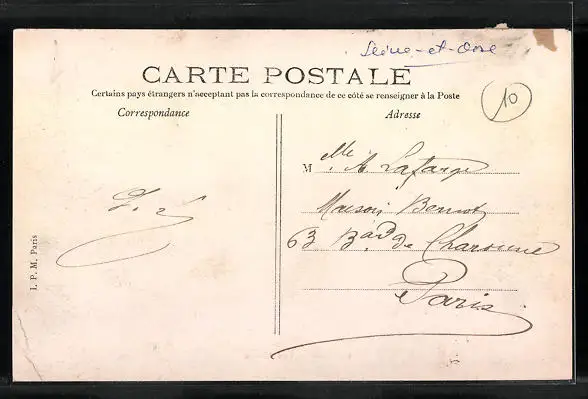 Seine-et-Oise
CARTE POSTALE
Certains pays étrangers n'acceptant pas la correspondance de ce côté se renseigner à la Poste
Correspondance
Adresse
10
Melle A. Lafarge
Maison Benoot
63 Bard de Charonne
Paris
I. P. M. Paris